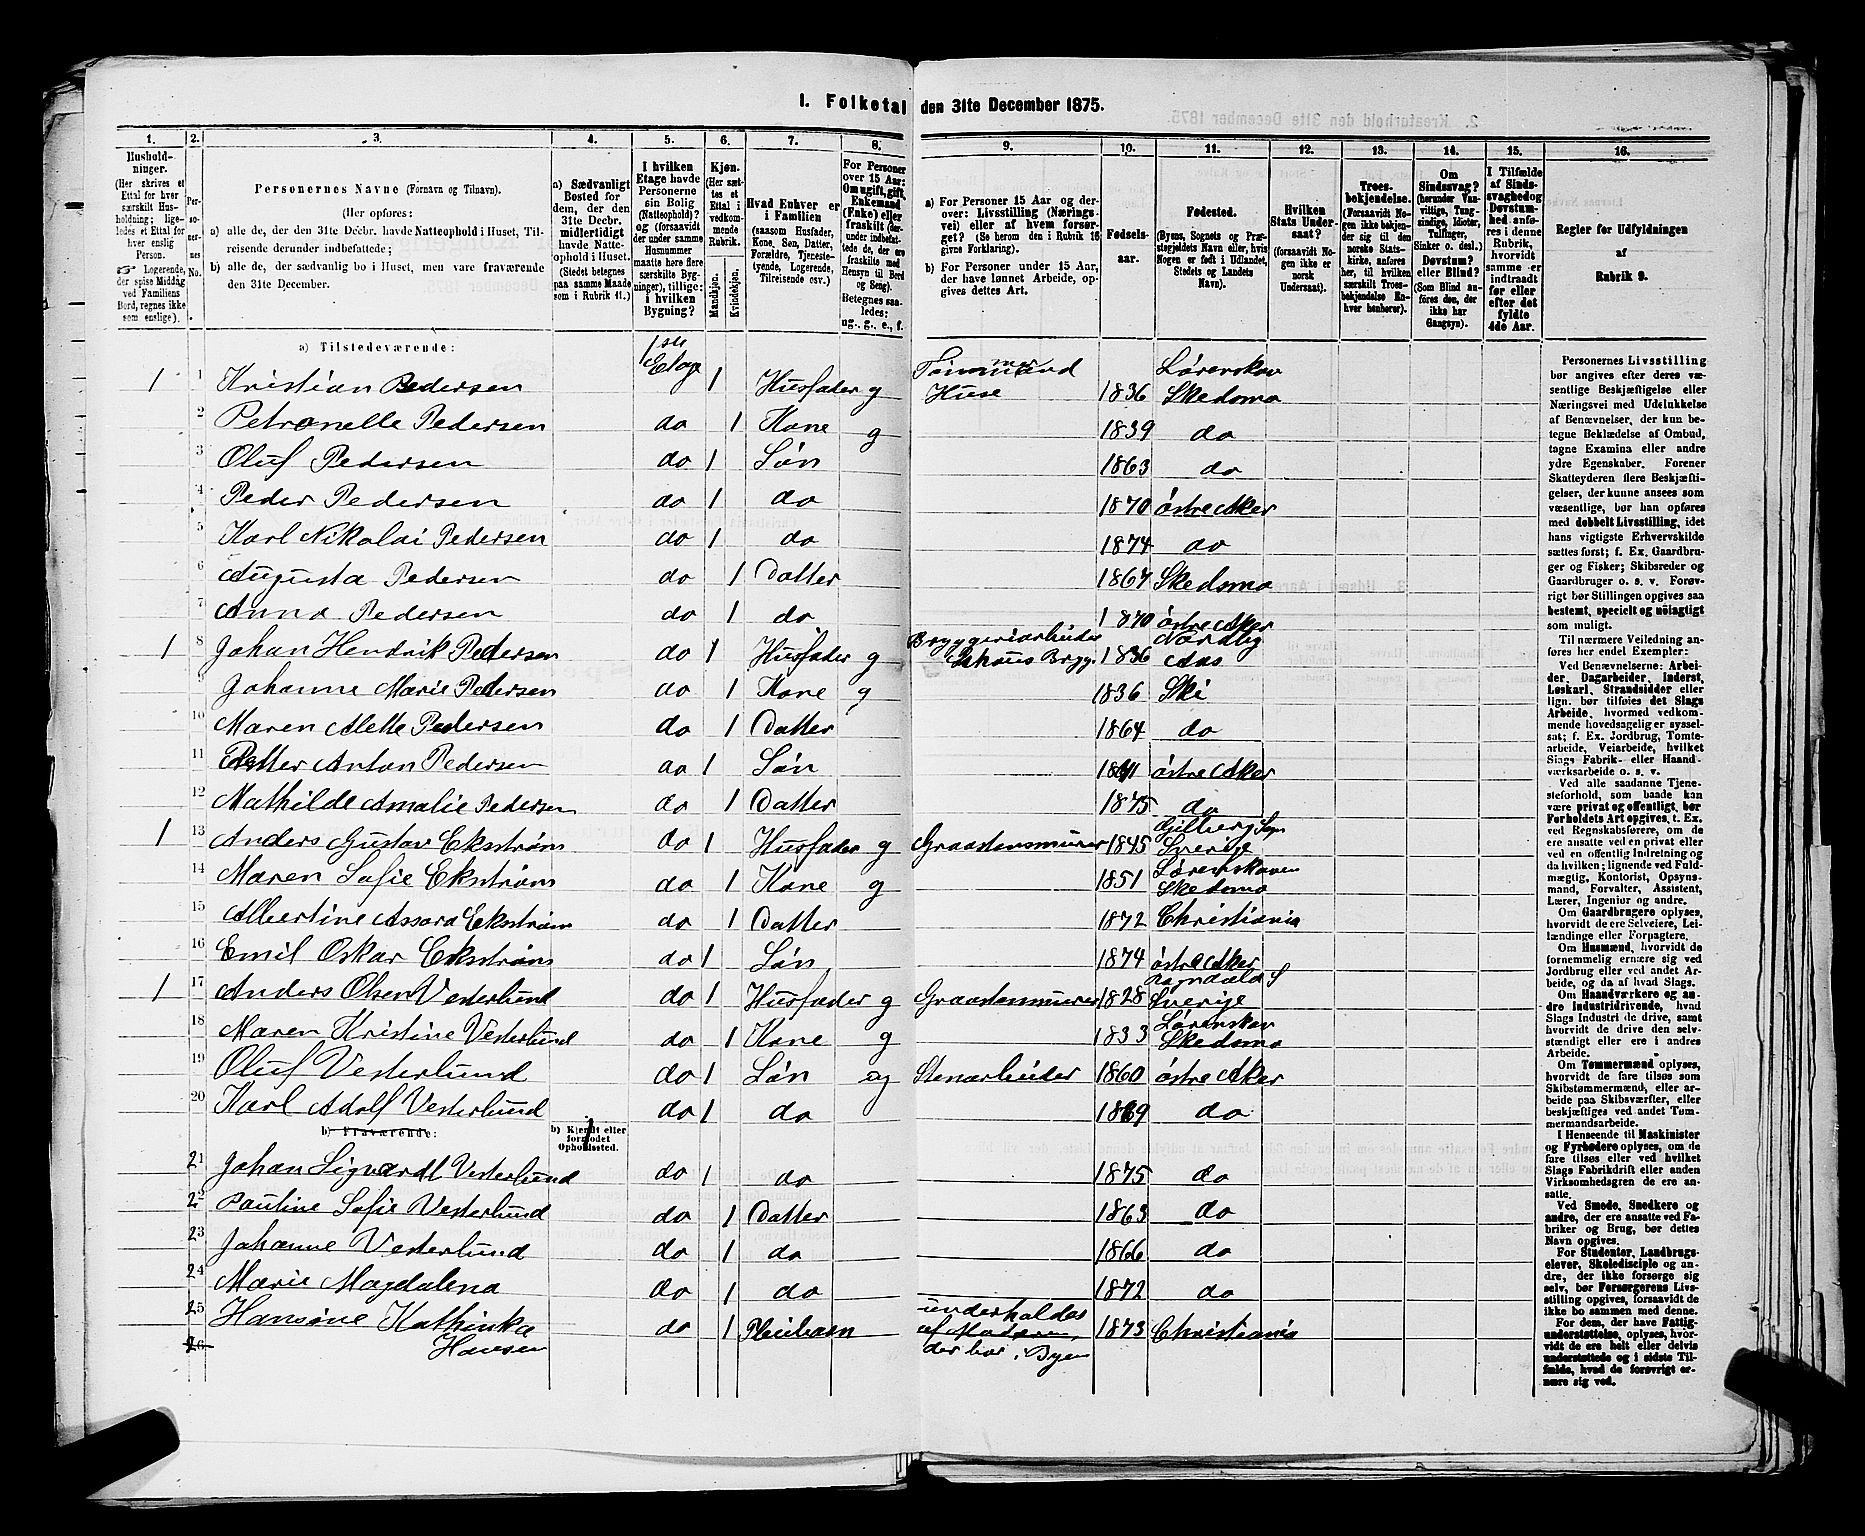 I. Folketal den 31te December 1875.
1. 2. 3. 4. 5. 6. 7. 8. 9. 10. 11. 12. 13. 14. 15. 16.
Husholdninger. (Her skrives et Ettal for hver særskilt Husholdning; ligeledes et Ettal for hver enslig Person. ☞ Logerende, der spise Middag ved Familiens Bord, regnes ikke som enslige).
Personernes No.
Personernes Navne (Fornavn og Tilnavn).
(Her opføres:
a) alle de, der den 31te Decbr. havde Natteophold i Huset, Tilreisende derunder indbefattede;
b) alle de, der sædvanlig bo i Huset, men vare fraværende den 31te December.
a) Sædvanligt Bosted for dem, der den 31te Decbr. midlertidigt havde Natteophold i Huset. (Stedet betegnes paa samme Maade som i Rubrik 11.)
I hvilken Etage havde Personerne sin Bolig (Natteophold)? og (forsaavidt der under samme Husnummer maatte høre flere særskilte Bygninger), tillige: i hvilken Bygning?
Kjøn. (Her sættes et Ettal i vedkommende Rubrik. Mandkjøn. Kvindekjøn.
Hvad Enhver er i Familien (saasom Husfader, Kone, Søn, Datter, Forældre, Tjenestetyende, Logerende, Tilreisende osv.)
For Personer over 15 Aar: Om ugift, gift, Enkemand (Enke) eller fraskilt (derunder indbefattede de, der ere fraskilte med Hensyn til Bord og Seng). Betegnes saaledes: ug., g., e., f.
a) For Personer 15 Aar og derover: Livsstilling (Næringsvei) eller af hvem forsørget? (Se herom den i Rubrik 16 givne Forklaring).
b) For Personer under 15 Aar, der have lønnet Arbeide, opgives dettes Art.
Fødselsaar.
Fødested. (Byens, Sognets og Præstegjeldets Navn eller, hvis Nogen er født i Udlandet, Stedets og Landets Navn).
Hvilken Stats Undersaat? (forsaavidt Nogen ikke er norsk Undersaat).
Troesbekjendelse. (Forsaavidt Nogen ikke bekjender sig til den norske Statskirke, anføres her, til hvilken særskilt Troesbekjendelse Enhver henhører).
Om Sindssvag? (herunder Vanvittige, Tungsindige, Idioter, Tullinger, Sinker o. desl.) Døvstum? eller Blind? (Som Blind anføres den, der ikke har Gangsyn).
I Tilfælde af Sindssvaghed og Døvstumhed anføres i denne Rubrik, hvorvidt samme er indtraadt før eller efter det fyldte 4de Aar.
Regler for Udfyldningen af Rubrik 9.
a) Tilstedeværende:
1 1 Kristian Pedersen 1ste Etage 1 Husfader g Tømmermand Huse 1836 Lørenskov Skedsmo
2 Petronelle Pedersen do 1 Kone g 1839 do
3 Oluf Pedersen do 1 Søn 1863 do
4 Peder Pedersen do 1 do 1870 østre Aker
5 Karl Nikolai Pedersen do 1 do 1874 do
6 Augusta Pedersen do 1 Datter 1867 Skedsmo
7 Anna Pedersen do 1 do 1870 østre Aker
1 8 Johan Hendrik Pedersen do 1 Husfader g Bryggeriarbeider Bryg. 1836 Nordby Aas
9 Johanne Marie Pedersen do 1 Kone g 1836 Ski
10 Maren Alette Pedersen do 1 Datter 1864 do
11 Petter Anton Pedersen do 1 Søn østre Aker
12 Mathilde Amalie Pedersen do 1 Datter 1875 do
1 13 Anders Gustav Ekstrøm do 1 Husfader g Graastensmurer 1845 Gilberg Sogn Sverige
14 Maren Sofie Ekstrøm do 1 Kone g 1851 Lørenskoven Skedsmo
15 Albertine Assora Ekstrøm do 1 Datter 1872 Christiania
16 Emil Oskar Ekstrøm do 1 Søn 1874 østre Aker
1 17 Anders Olsen Vesterlund do 1 Husfader g Graastensmurer 1828 S Sverige
18 Maren Kristine Vesterlund do 1 Kone g 1833 Lørenskov Skedsmo
19 Oluf Vesterlund do 1 Søn ug Stenarbeider 1860 østre Aker
20 Karl Adolf Vesterlund do 1 do 1869 do
b) Fraværende: b) Kjendt eller formodet Opholdssted.
21 Johan Sigvardt Vesterlund do 1 do 1875 do
22 Pauline Sofie Vesterlund do 1 Datter 1863 do
23 Johanne Vesterlund do 1 do 1866 do
24 Marie Magdalena do 1 do 1872 do
25 Hansine Kathinka Hansen do 1 Pleiebarn underholdes af Moderen, der bor i Byen 1873 Christiania
26
Personernes Livsstilling bør angives efter deres væsentlige Beskjæftigelse eller Næringsvei med Udelukkelse af Benævnelser, der kun betegue Beklædelse af Ombud, tagne Examina eller andre ydre Egenskaber. Forener Skatteyderen flere Beskjæftigelser, der kunne ansees som væsentlige, bør han opføres med dobbelt Livsstilling, idet hans vigtigste Erhvervskilde sættes først; f. Ex. Gaardbruger og Fisker; Skibsreder og Gaardbruger o. s. v. Forøvrigt bør Stillingen opgives saa bestemt, specielt og nøiagtigt som muligt.
Til nærmere Veiledning anføres her endel Exempler:
Ved Benævnelserne: Arbeider, Dagarbeider, Inderst, Løskarl, Strandsidder eller lign. bør tilføies det Slags Arbeide, hvormed vedkommende hovedsagelig er sysselsat; f. Ex. Jordbrug, Tomtearbeide, Veiarbeide, hvilket Slags Fabrik- eller Haandværksarbeide o. s. v.
Ved alle saadanne Tjenesteforhold, som baade kan være privat og offentligt, bør Forholdets Art opgives, t. Ex. ved Regnskabsførere, om de ere ansatte ved en privat eller ved en offentlig Indretning og da hvilken; lignende ved Fuldmægtig, Kontorist, Opsynsmand, Forvalter, Assistent, Lærer, Ingeniør og andre.
Om Gaardbrugere oplyses, hvorvidt de ere Selveiere, Leilændinge eller Forpagtere.
Om Husmænd, hvorvidt de fornemmelig ernære sig ved Jordbrug eller ved andet Arbeide, og da af hvad Slags.
Om Haandværkere og andre Industridrivende, hvad Slags Industri de drive, samt hvorvidt de drive den selvstændigt eller ere i andres Arbeide.
Om Tømmermænd oplyses, hvorvidt de fare tilsøs som Skibstømmermænd, eller arbeide paa Skibsværfter, eller beskjæftiges ved andet Tømmermandsarbeide.
I Henseende til Maskinister og Fyrbødere oplyses, om de fare tilsøs eller ved hvilket Slags Fabrikdrift eller anden Virksomhedsgren de ere ansatte.
Ved Smede, Snedkere og andre, der ere ansatte ved Fabriker og Brug, bør dettes Navn opgives.
For Studenter, Landbrugselever, Skoledisciple og andre, der ikke forsørge sig selv, bør Forsørgerens Livsstilling opgives, forsaavidt de ikke bo sammen med denne.
For dem, der have Fattigunderstøttelse, oplyses, hvorvidt de ere helt eller delvis understøttede og i sidste Tilfælde, hvad de forøvrigt ernære sig ved.